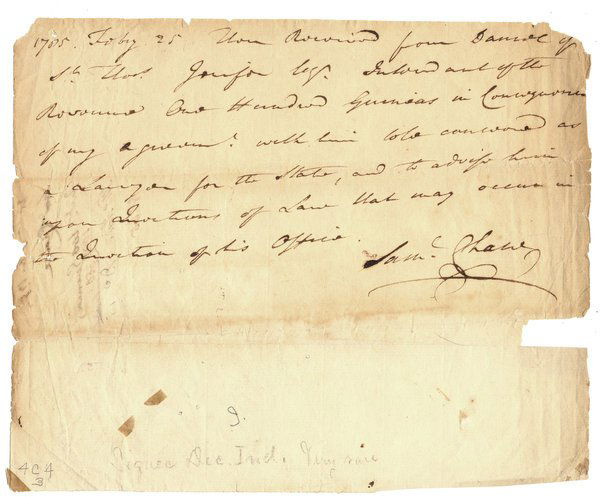 1785. Feby 25 then Received from Daniel of
St. Thos. Jenifer Esqr. Intendant of the
Revenue One Hundred Guineas in Consequence
of my agreemt. with him to be concerned as
a Lawyer for the State, and to advise him
upon Questions of Law that may occur in
the Execution of his Office.
Saml. Chase
9.
Signer Dec. Ind. Very rare
4C4
3